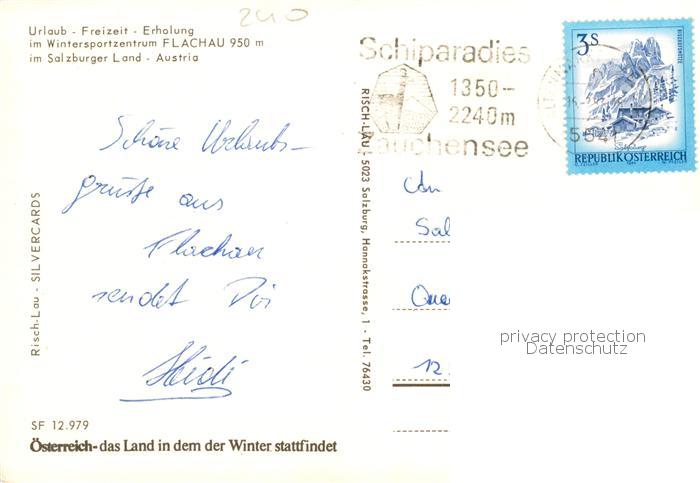 240
Urlaub - Freizeit - Erholung
im Wintersportzentrum FLACHAU 950 m
im Salzburger Land - Austria
Schiparadies
1350-
2240m
Zauchensee
3S
BISCHOFSMÜTZE
Salzburg
REPUBLIK ÖSTERREICH
Schöne Urlaubs-
grüße aus
Flachau
sendet Dir
Heidi
Risch-Lau - SILVERCARDS
RISCH-LAU, 5023 Salzburg, Hannakstrasse, 1 - Tel. 76430
An
Sal
12
privacy protection
Datenschutz
SF 12.979
Österreich-das Land in dem der Winter stattfindet